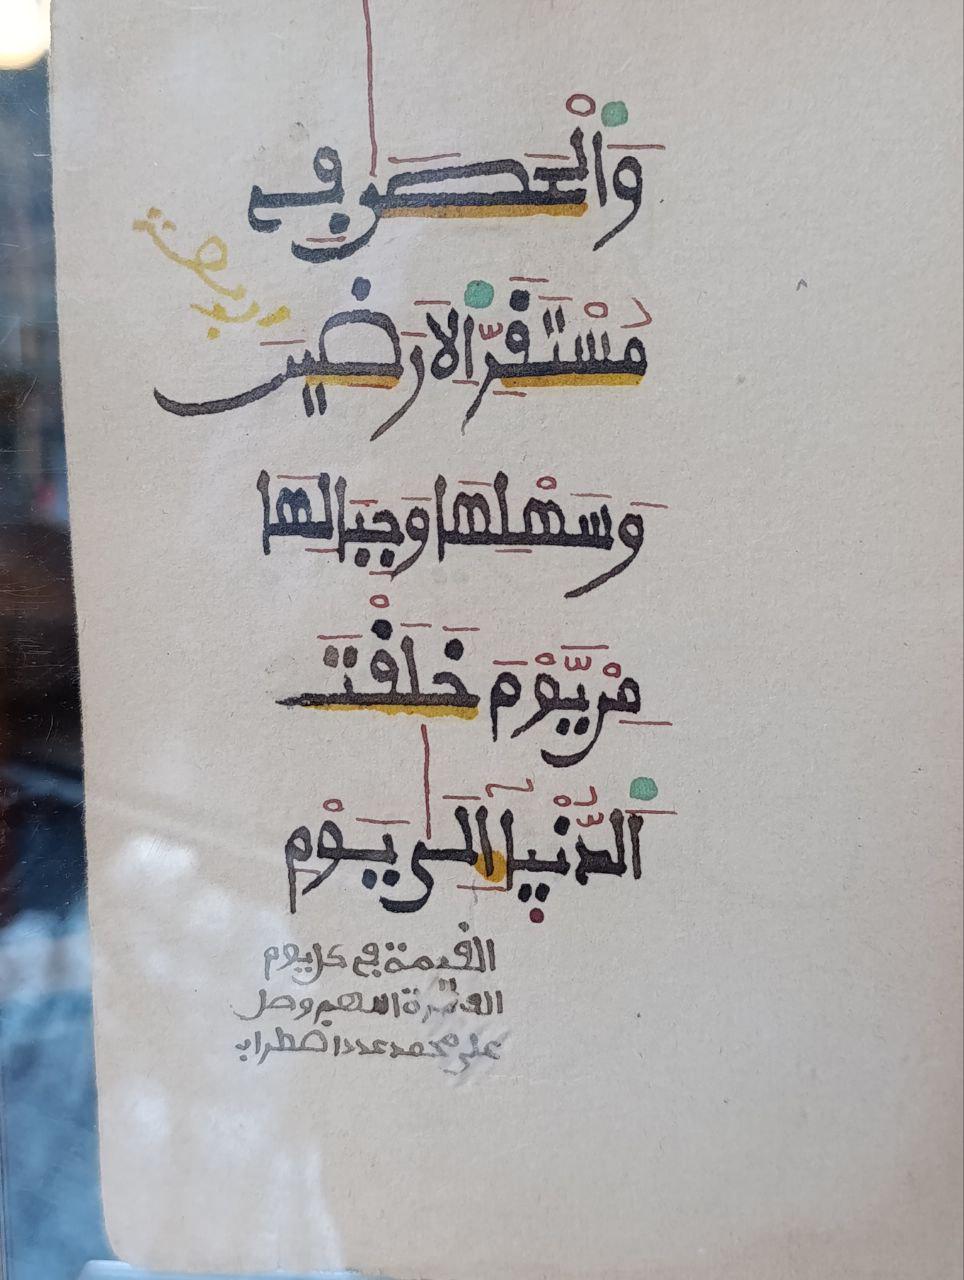 وَالْحَصَى فِي
مُسْتَقَرِّ الَارَضِينَ
وَسَهْلِهَا وَجِبَالِهَا
مِنْ يَّوْمَ خَلَقْتَ
الدُّنْيَآ إِلَى يَوْمِ
القيمة في كل يوم
الف مرة اللهم وصل
على محمد عدد اضطراب